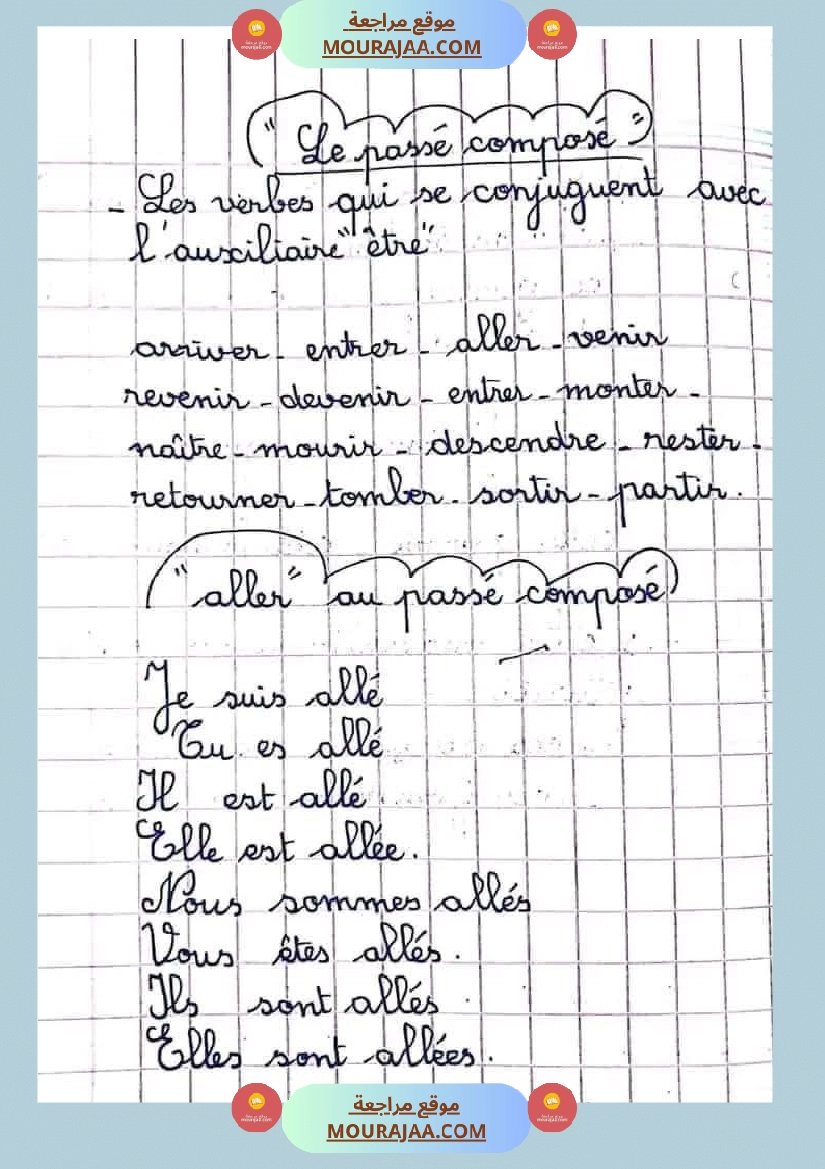 موقع مراجعة
MOURAJAA.COM
" Le passé composé "
- Les verbes qui se conjuguent avec
l'auxiliaire "être"
arriver - entrer - aller - venir
revenir - devenir - entrer - monter -
naître - mourir - descendre - rester -
retourner - tomber - sortir - partir.
"aller" au passé composé
Je suis allé
Tu es allé
Il est allé
Elle est allée.
Nous sommes allés
Vous êtes allés.
Ils sont allés
Elles sont allées.
موقع مراجعة
MOURAJAA.COM